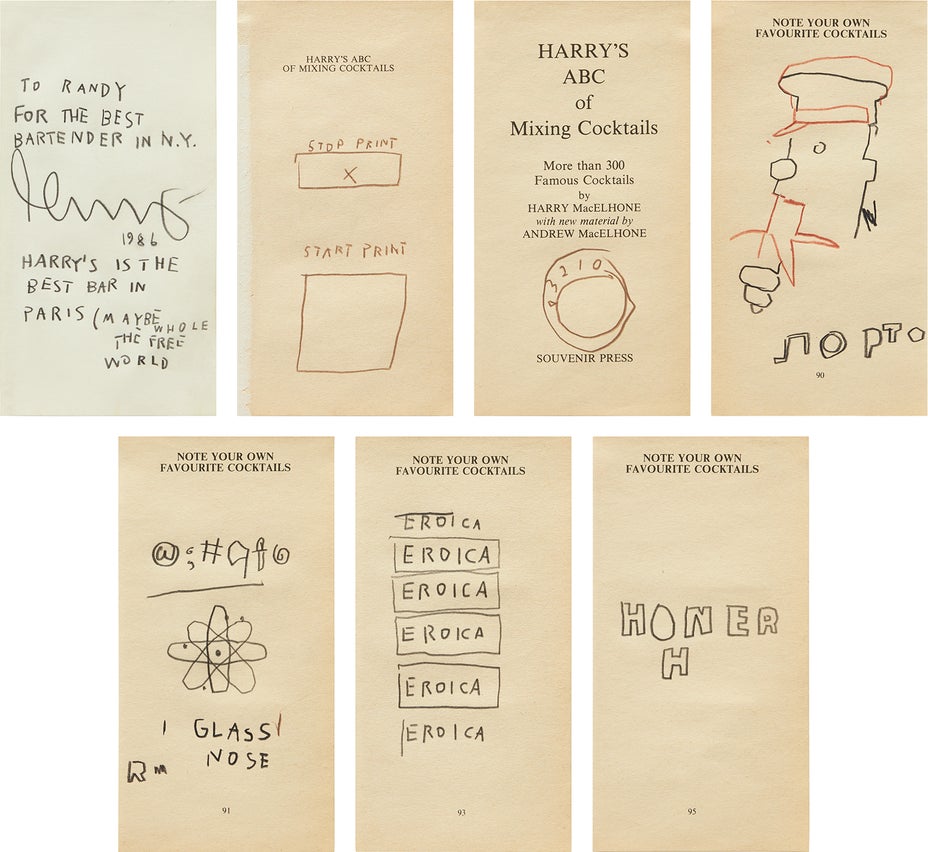 TO RANDY
FOR THE BEST
BARTENDER IN N.Y.
1986
HARRY'S IS THE
BEST BAR IN
PARIS (MAYBE
THE FREE WHOLE
WORLD
HARRY'S ABC
OF MIXING COCKTAILS
STOP PRINT
X
START PRINT
HARRY'S
ABC
of
Mixing Cocktails
More than 300
Famous Cocktails
by
HARRY MacELHONE
with new material by
ANDREW MacELHONE
3210
SOUVENIR PRESS
NOTE YOUR OWN
FAVOURITE COCKTAILS
ЛО РТО
90
NOTE YOUR OWN
FAVOURITE COCKTAILS
1 GLASS
NOSE
91
NOTE YOUR OWN
FAVOURITE COCKTAILS
EROICA
EROICA
EROICA
EROICA
EROICA
EROICA
93
NOTE YOUR OWN
FAVOURITE COCKTAILS
HONER
H
95